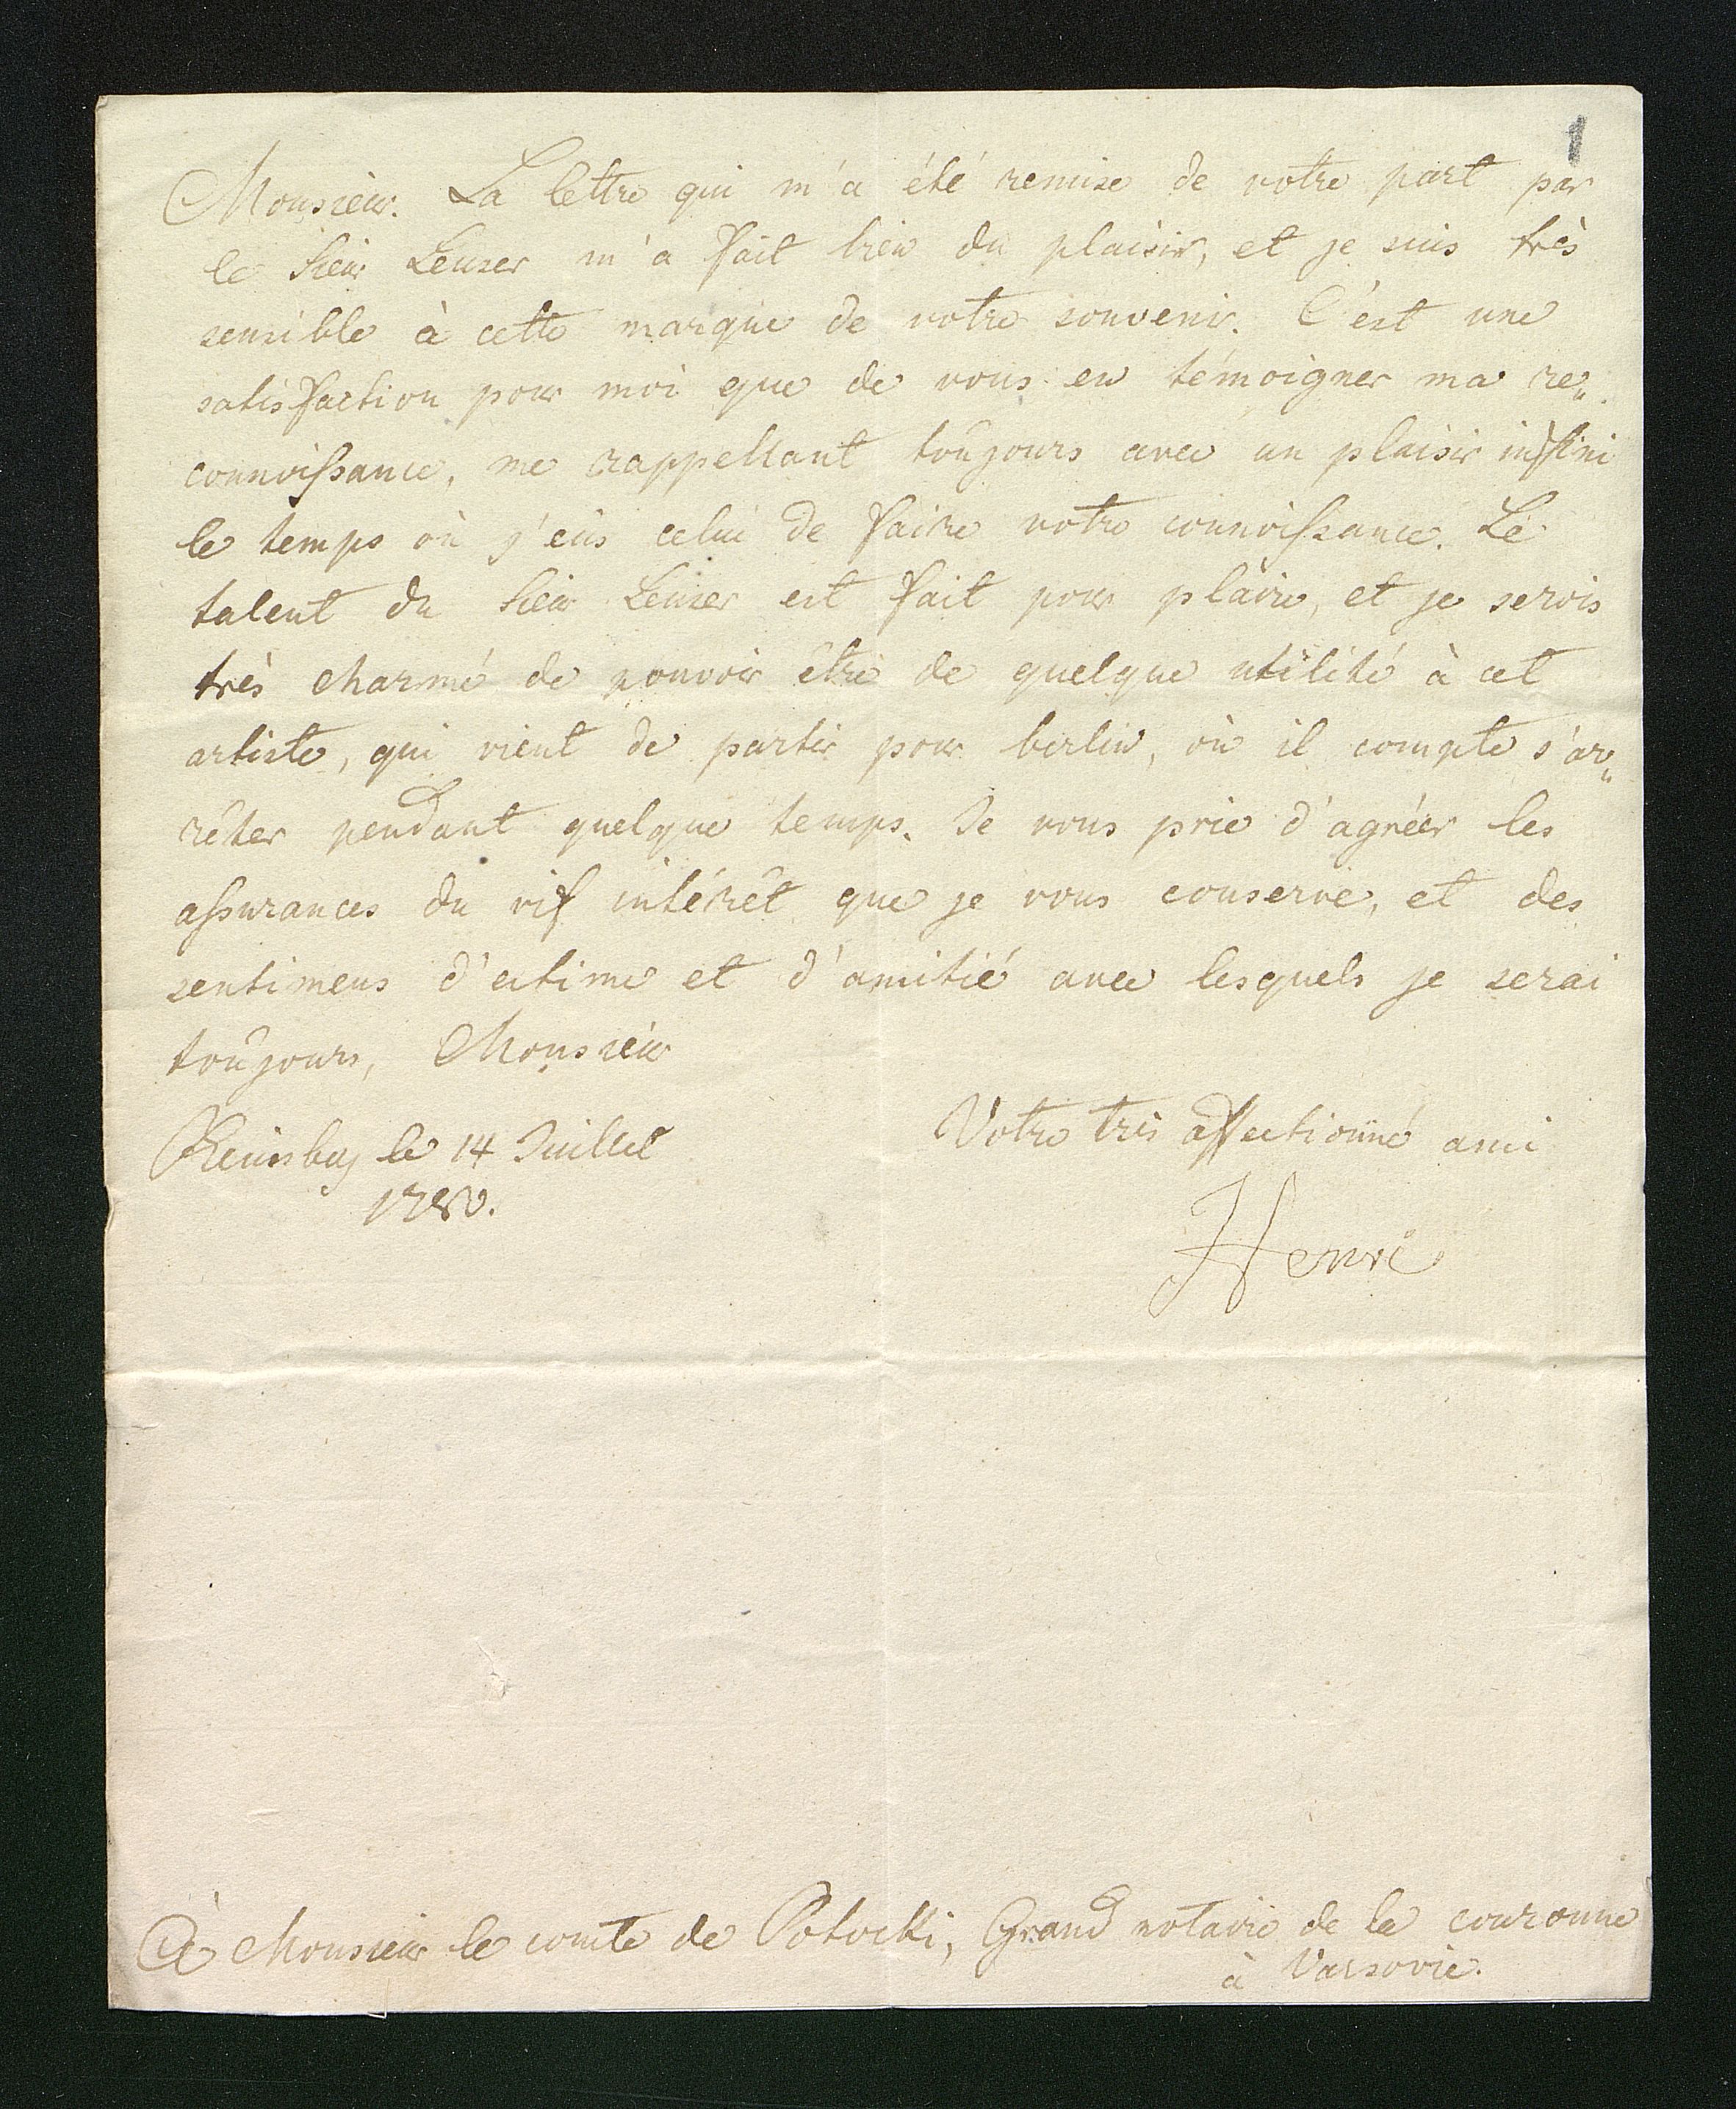 1
Monsieur. La lettre qui m'a été remise de votre part par
le Sieur Leuzer m'a fait bien du plaisir, et je suis très
sensible à cette marque de votre souvenir. C'est une
satisfaction pour moi que de vous en témoigner ma re„
connoissance, me rappellant toujours avec un plaisir infini
le temps où j'eus celui de faire votre connoissance. Le
talent du Sieur Leuzer est fait pour plaire, et je serois
très charmé de pouvoir être de quelque utilité à cet
artiste, qui vient de partir pour berlin, où il compte s'ar„
rêter pendant quelque temps. Je vous prie d'agréer les
assurances du vif intérêt que je vous conserve, et des
sentimens d'estime et d'amitié avec lesquels je serai
toujours, Monsieur
Votre très affectionné ami
Reinsberg le 14 Juillet
1780.
Henri
À Monsieur le comte de Potocki, Grand notaire de la couronne
à Varsovie.